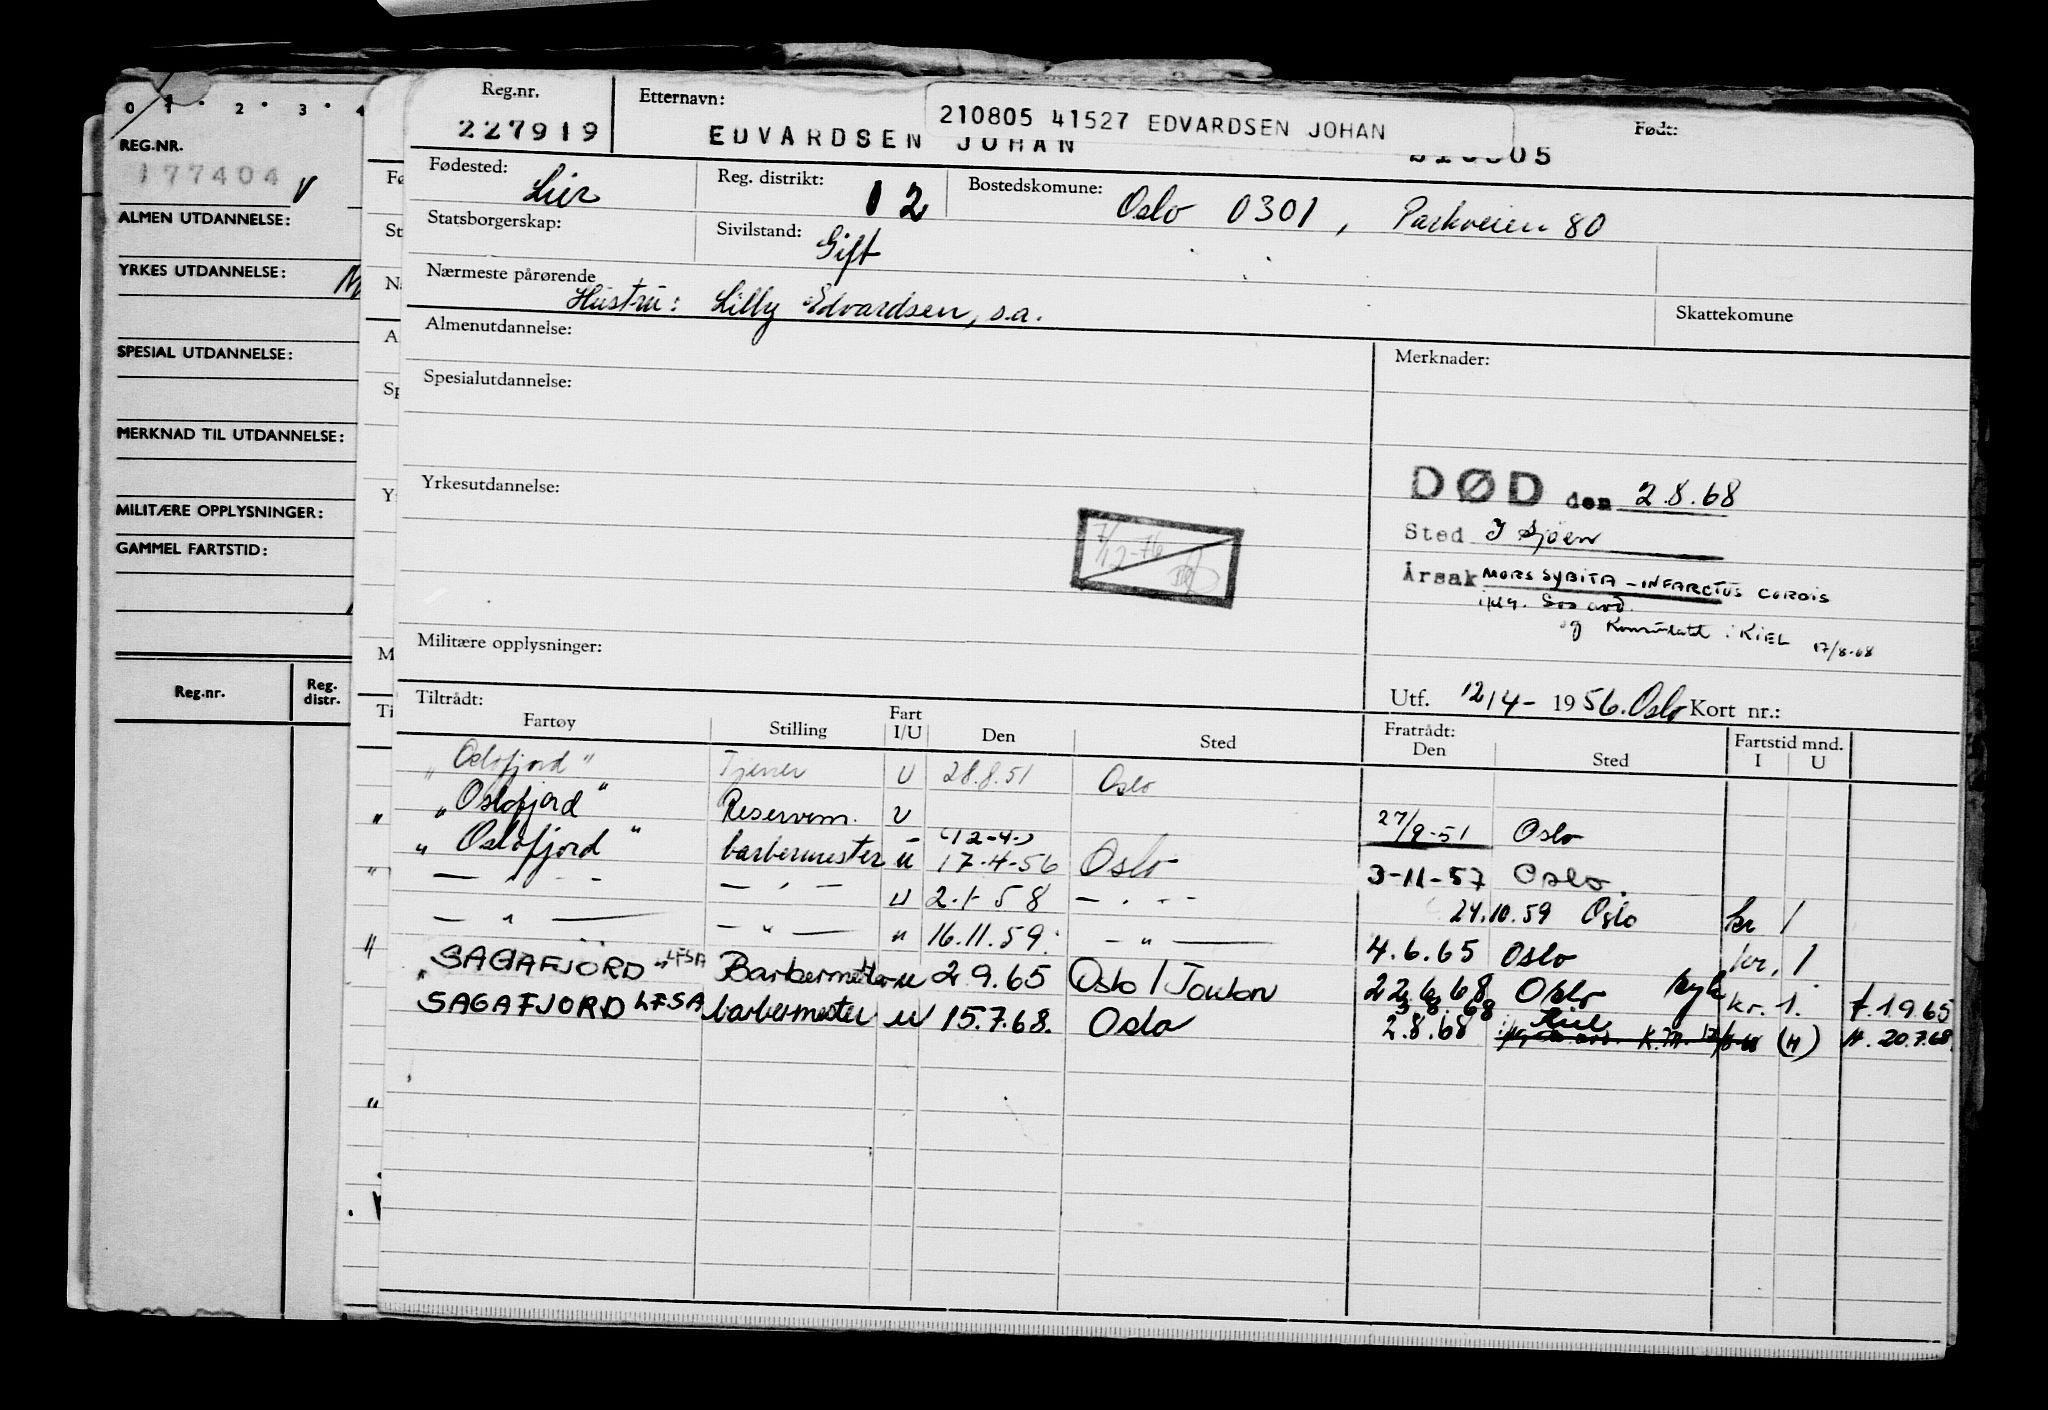 0 1 2 3 4
REG.NR.
177404 V
ALMEN UTDANNELSE:
YRKES UTDANNELSE:
SPESIAL UTDANNELSE:
MERKNAD TIL UTDANNELSE:
MILITÆRE OPPLYSNINGER:
GAMMEL FARTSTID:
Reg.nr. Reg. distr.
Reg.nr. Etternavn: 210805 41527 EDVARDSEN JOHAN Født:
227919 EDVARDSEN JOHAN
Fødested: Lier Reg. distrikt: 12 Bostedskomune: Oslo 0301, Parkveien 80
Statsborgerskap: Sivilstand: Gift
Nærmeste pårørende
Hustru: Lilly Edvardsen, s.a. Skattekomune
Almenutdannelse: Merknader:
Spesialutdannelse:
Yrkesutdannelse:
7/12-76
DØD den 2.8.68
Sted I Sjøen
Årsak MORS SYBITA - INFARCTUS CORDIS
KIEL 17/8-68
Militære opplysninger:
Utf. 12/4- 1956. Oslo Kort nr.:
Tiltrådt: Fratrådt: Fartstid mnd.
Fartøy Stilling Fart I/U Den Sted Den Sted I U
"Oslofjord" Tjener U 28.8.51 Oslo
"Oslofjord" Reservem. U 27/9-51 Oslo
"Oslofjord" barbermester U (12-4-) 17-4-56 Oslo 3-11-57 Oslo.
— " — — " — U 2.1-58 — " — 24.10.59 Oslo kr 1
— " — — " — " 16.11.59. — " — 4.6.65 Oslo kr. 1
"SAGAFJORD" LFSA Barbermester U 2 9.65 Oslo / Toulon 22.6.68 Oslo kr. 1. 19 65
SAGAFJORD LFSA barbermester U 15.7.68. Oslo 2.8.68 Kiel (H) 20.7.68.